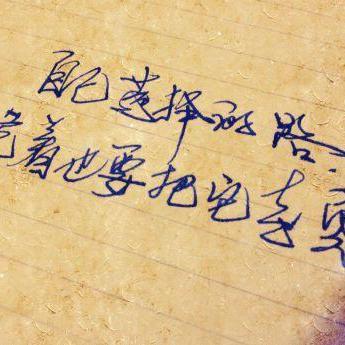 自己选择的路、
跪着也要把它走完